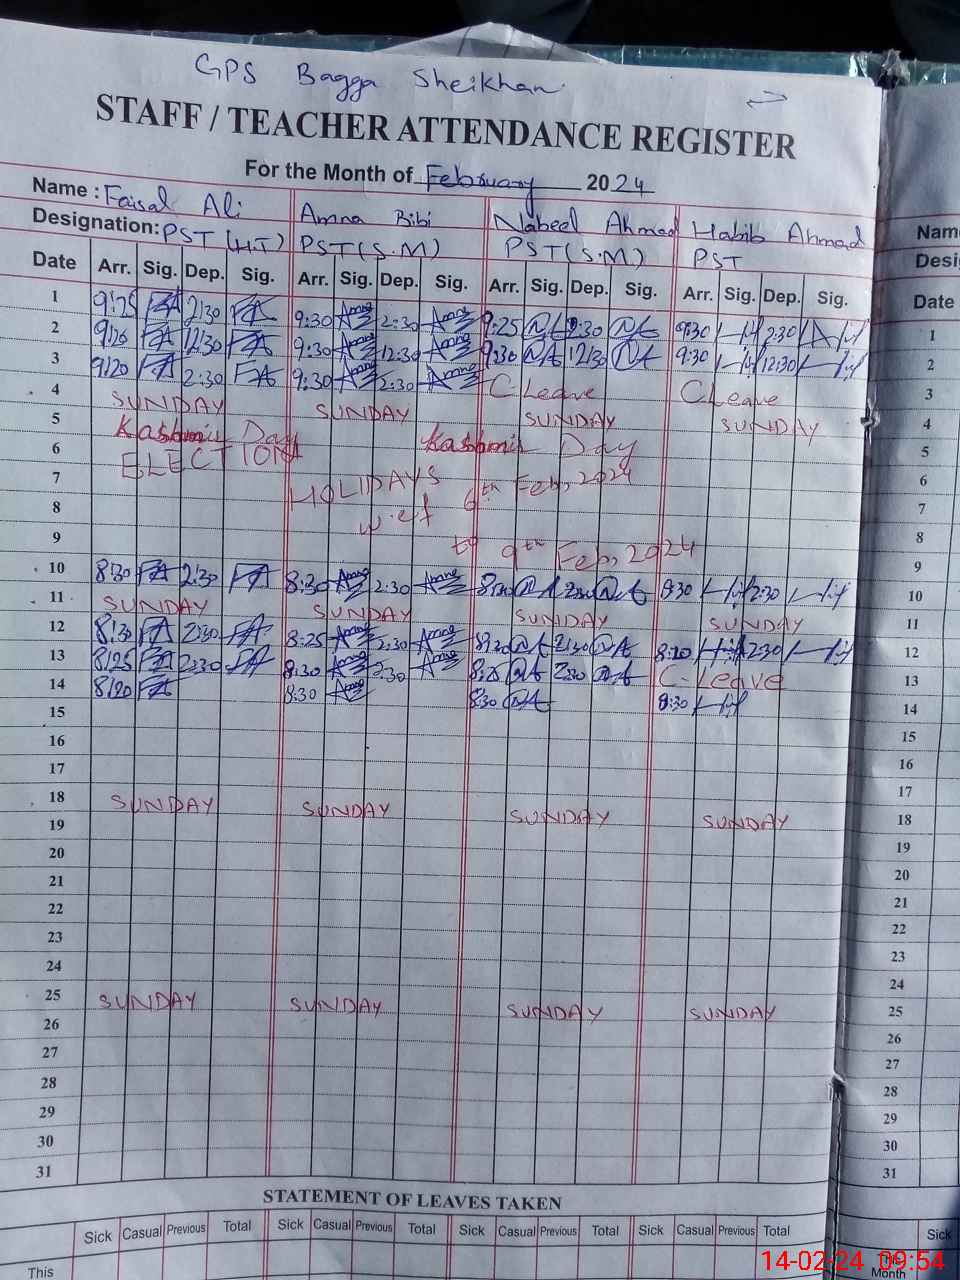 GPS Bagga Sheikhan
STAFF / TEACHER ATTENDANCE REGISTER
For the Month of February 2024
Name : Faisal Ali Amna Bibi Nabeel Ahmad Habib Ahmad Nam
Designation: PST (H.T) PST (S.M) PST (S.M) PST Desi
Date Arr. Sig. Dep. Sig. Arr. Sig. Dep. Sig. Arr. Sig. Dep. Sig. Arr. Sig. Dep. Sig. Date
1 9:25 FA 2:30 FA 9:30 Amna 2:30 Amna 9:25 NA 2:30 NA 9:30 2:30 1
2 9:20 FA 12:30 FA 9:30 Amna 12:30 Amna 9:30 NA 12:30 NA 9:30 12:30 2
3 9:20 FA 2:30 FA 9:30 Amna 2:30 Amna C Leave C Leave 3
4 SUNDAY SUNDAY SUNDAY SUNDAY 4
5 Kashmir Day Kashmir Day 5
6 ELECTION 6
7 HOLIDAYS 6th Feb, 2024 7
8 w.e.f 8
9 to 9th Feb, 2024 9
10 8:30 FA 2:30 FA 8:30 Amna 2:30 Amna 8:30 NA 2:30 NA 8:30 2:30 10
11 SUNDAY SUNDAY SUNDAY SUNDAY 11
12 8:30 FA 2:30 FA 8:25 Amna 2:30 Amna 8:30 NA 2:30 NA 8:20 2:30 12
13 8:25 FA 2:30 FA 8:30 Amna 2:30 Amna 8:25 NA 2:30 NA C-Leave 13
14 8:20 FA 8:30 Amna 8:30 NA 8:30 14
15 15
16 16
17 17
18 SUNDAY SUNDAY SUNDAY SUNDAY 18
19 19
20 20
21 21
22 22
23 23
24 24
25 SUNDAY SUNDAY SUNDAY SUNDAY 25
26 26
27 27
28 28
29 29
30 30
31 31
STATEMENT OF LEAVES TAKEN
Sick Casual Previous Total Sick Casual Previous Total Sick Casual Previous Total Sick Casual Previous Total Sick
This This
Month
14-02-24 09:54